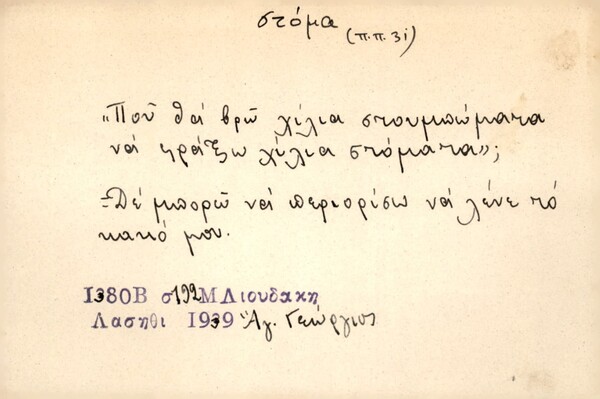 στόμα (π.π. 31)
"Ποῦ θά βρῶ χίλια στουμπώματα
νά φράξω χίλια στόματα»;
=Δέ μπορῶ νά περιορίσω νά λένε τό
κακό μου.
1380Β σ192 Μ Λιουδακη
Λασηθι 1939 Ἅγ. Γεώργιος